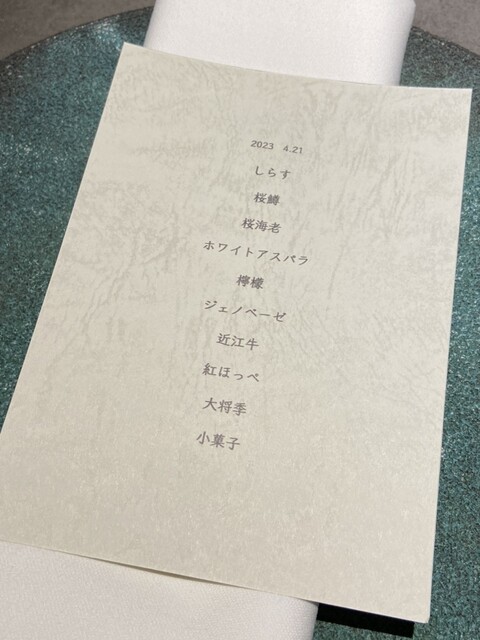 2023 4.21
しらす
桜鱒
桜海老
ホワイトアスパラ
檸檬
ジェノベーゼ
近江牛
紅ほっぺ
大将季
小菓子